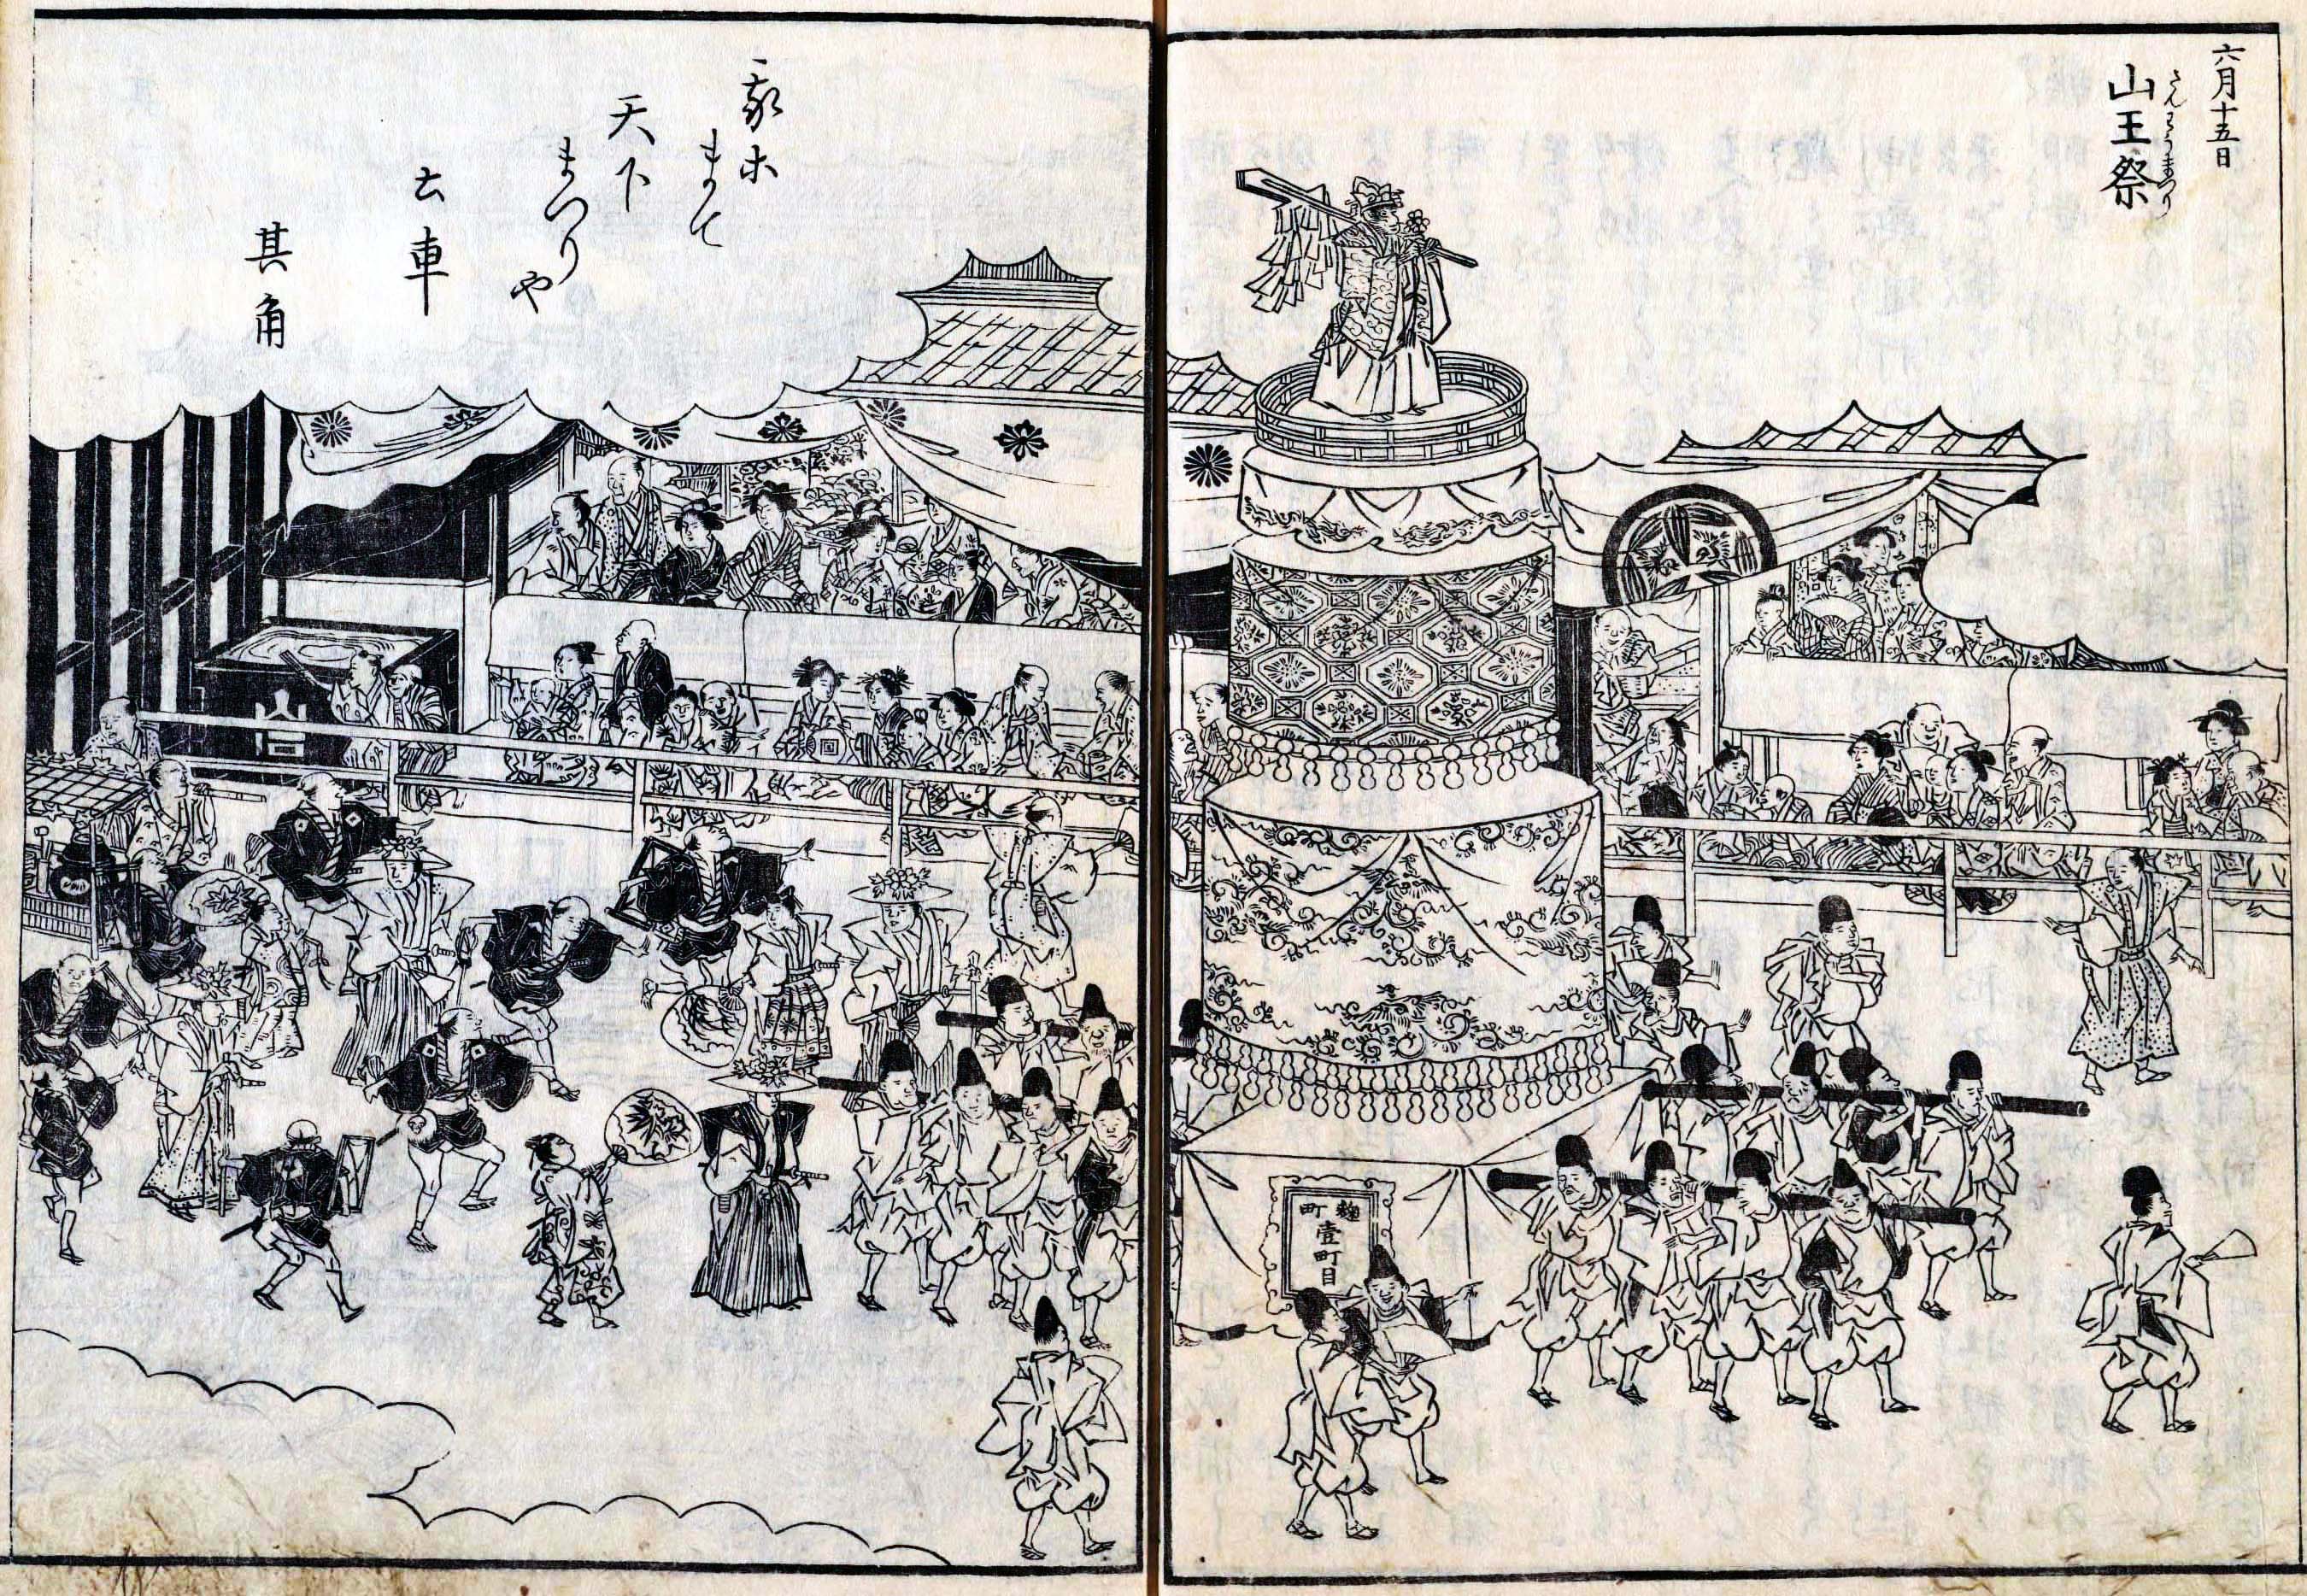 六月十五日
山王祭
さんわうまつり
麹町
壹町目
我等
まて
天下
まつり
や
土車
其角